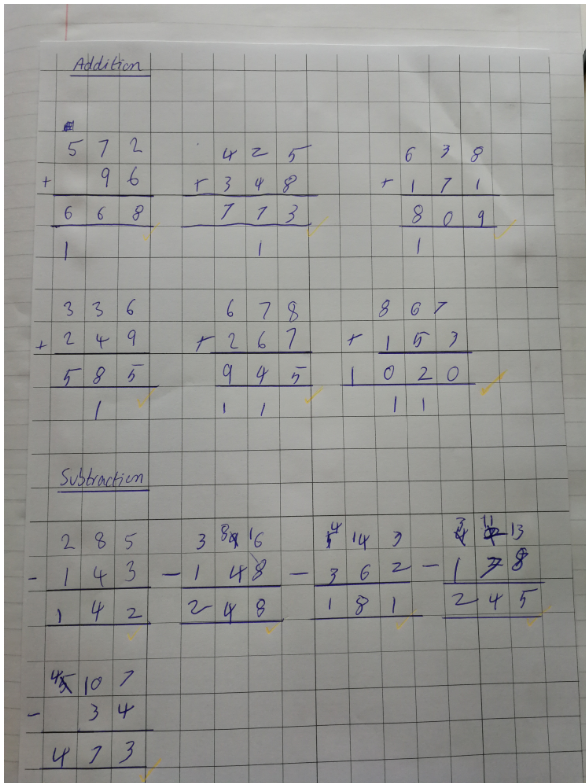 Addition
5 7 2    4 2 5    6 3 8
+ 9 6    + 3 4 8    + 1 7 1
6 6 8    7 7 3    8 0 9
1    1    1
3 3 6    6 7 8    8 6 7
+ 2 4 9    + 2 6 7    + 1 5 3
5 8 5    9 4 5    1 0 2 0
1    1 1    1 1
Subtraction
2 8 5    3 8 9 16    4 5 14 3    3 4 11 2 13
- 1 4 3    - 1 4 8    - 3 6 2    - 1 7 8
1 4 2    2 4 8    1 8 1    2 4 5
4 5 10 7
- 3 4
4 7 3